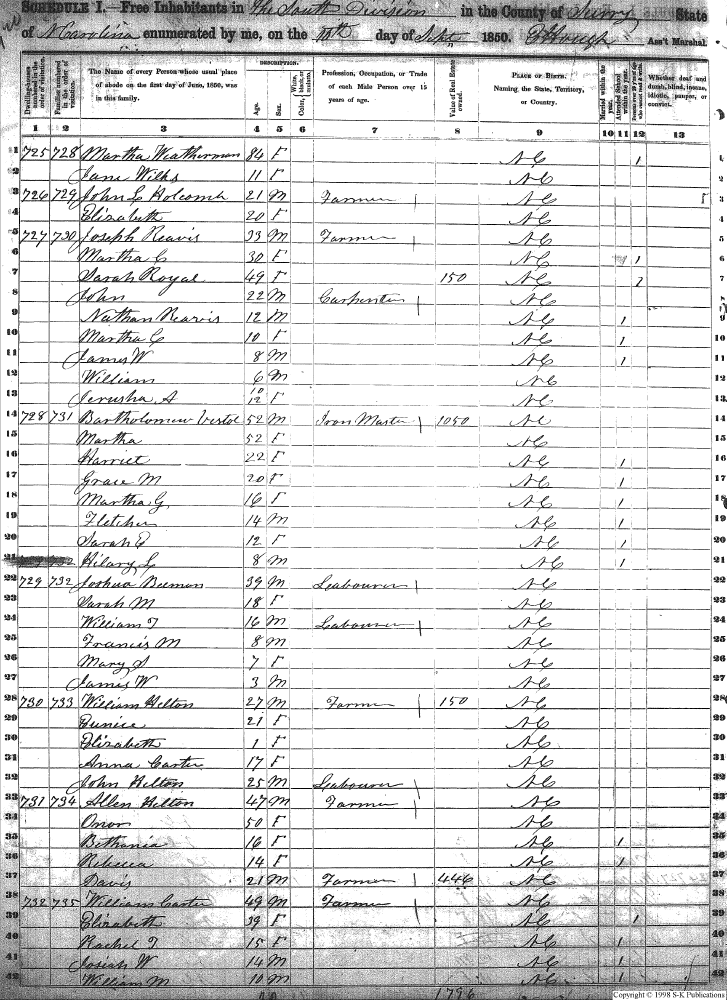 SCHEDULE I.—Free Inhabitants in The South Division in the County of Surry State
of N Carolina enumerated by me, on the day of Sept 1850. Ass't Marshal.
Dwelling-houses numbered in the order of visitation.
Families numbered in the order of visitation.
The Name of every Person whose usual place of abode on the first day of June, 1850, was in this family.
DESCRIPTION.
Age.
Sex.
White, black, or mulatto. Color,
Profession, Occupation, or Trade of each Male Person over 15 years of age.
Value of Real Estate owned.
PLACE OF BIRTH. Naming the State, Territory, or Country.
Married within the year.
Attended School within the year.
Persons over 20 y'rs of age who cannot read & write.
Whether deaf and dumb, blind, insane, idiotic, pauper, or convict.
1 2 3 4 5 6 7 8 9 10 11 12 13
1 725 728 Martha Weatherman 84 F NC 1 1
2 Jane Wilks 11 F NC 2
3 726 729 John L Holcomb 21 M Farmer NC 3
4 Elizabeth 20 F NC 4
5 727 730 Joseph Reavis 33 M Farmer NC 5
6 Martha C 30 F NC 1 6
7 Sarah Royal 49 F 150 NC 7
8 John 22 M Carpenter NC 8
9 Nathan Rearvis 12 M NC 1 9
10 Martha C 10 F NC 1 10
11 James W 8 M NC 1 11
12 William 6 M NC 12
13 Jerusha A 10/12 F NC 13
14 728 731 Bartholomew Vestal 52 M Iron Master 1050 NC 14
15 Martha 52 F NC 15
16 Harriet 22 F NC 1 16
17 Grace M 20 F NC 1 17
18 Martha G 16 F NC 1 18
19 Fletcher 14 M NC 1 19
20 Sarah E 12 F NC 1 20
21 732 Hilary L 8 M NC 1 21
22 729 732 Joshua Beeman 39 M Leabourer NC 22
23 Sarah M 18 F NC 23
24 William T 16 M Leabourer NC 24
25 Francis M 8 M NC 25
26 Mary S 7 F NC 26
27 James W 3 M NC 27
28 730 733 William Helton 27 M Farmer 150 NC 28
29 Eunice 21 F NC 29
30 Elizabeth 1 F NC 30
31 Anna Carter 17 F NC 31
32 John Helton 25 M Leabourer NC 32
33 731 734 Allen Helton 47 M Farmer NC 33
34 Omor 50 F NC 34
35 Bethania 16 F NC 1 35
36 Rebecca 14 F NC 1 36
37 Davis 21 M Farmer 446 NC 37
38 732 735 William Carter 49 M Farmer NC 38
39 Elizabeth 39 F NC 1 39
40 Rachel T 15 F NC 1 40
41 Josiah W 14 M NC 1 41
42 William M 10 M NC 1 42
1796
Copyright © 1998 S-K Publications